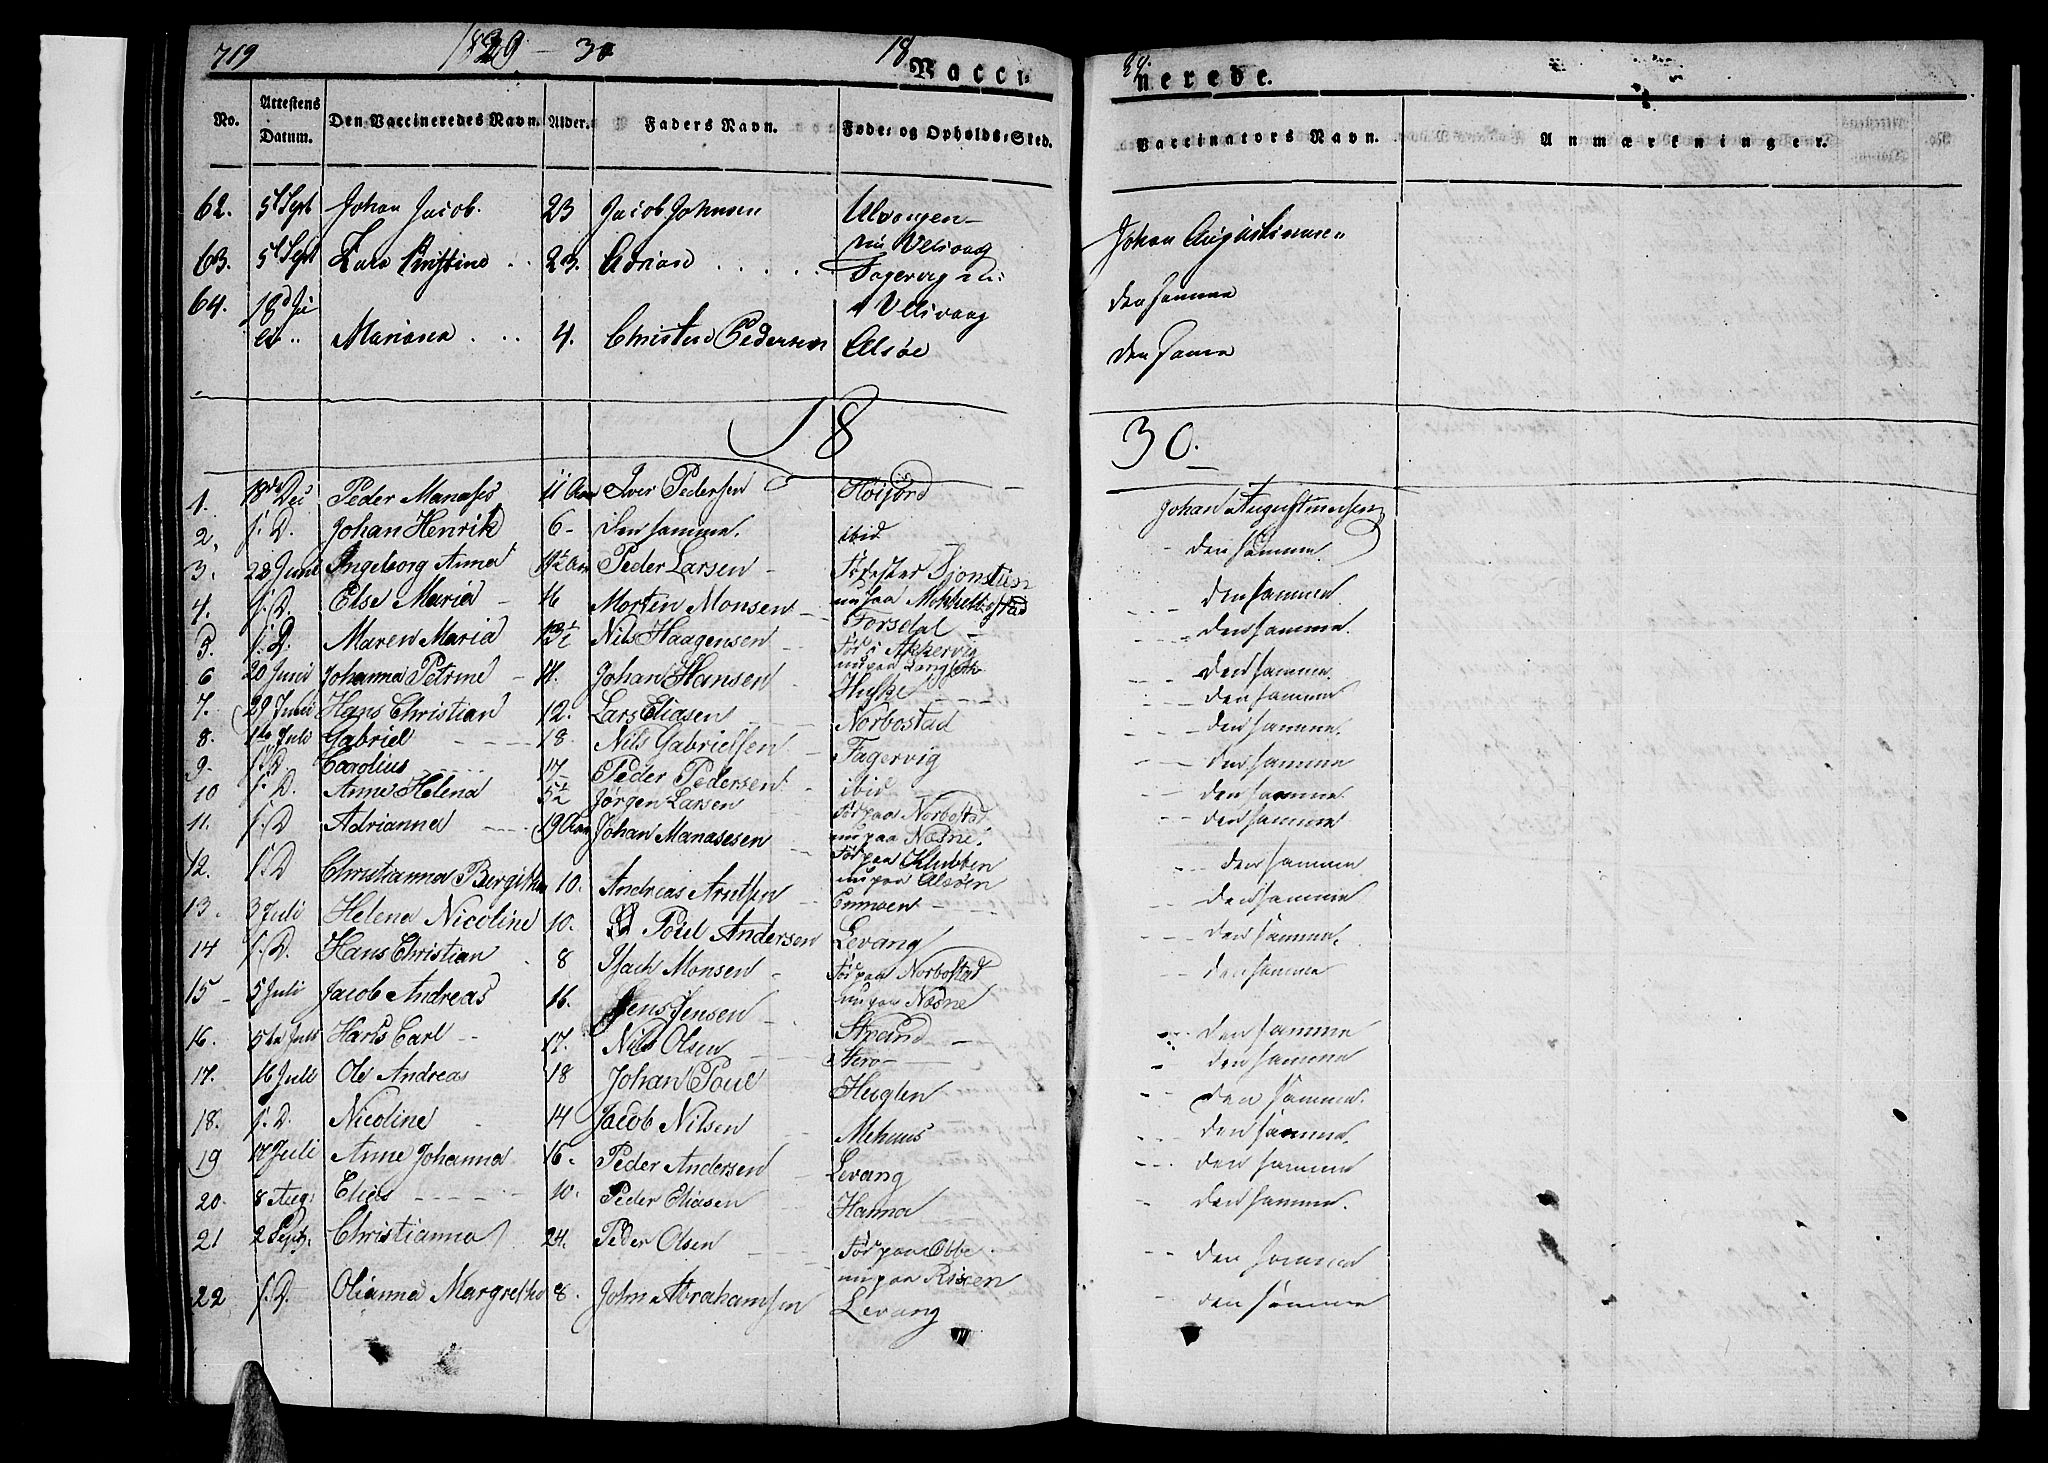 719 1829 - 30 18
Vacci-
nerede.
No. Attestens Datum. Den Vaccineredes Navn. Alder. Faders Navn. Føde- og Opholds-Sted. Vaccinators Navn. Anmærkninger.
62. 5t Sept Johan Jacob. 23 Jacob Johnsen Ulvangen - nu Velsvaag Johan Augustinusen
63. 5t Sept 23. Fagervig nu i Velsvaag den samme
64. 18d Juli Mariana 4. Christen Pedersen Alsøe den samme
18 30.
1. 18de Dec Peder Manases 11 Aar Iver Pedersen Høifjord Johan Augustinusen
2. s. D. Johan Henrik 6 - den samme. ibid - den samme.
3. 22 Juni Ingeborg Anna Peder Larsen - den samme
4. s. D. Else Maria - 16 Morten Monsen nu paa Mikkelbostad den samme.
5. s. D. Maren Maria Nils Haagensen Forsdal den samme
6 20 Juni Johanna Petrine - 14. Johan Hansen Fød i Akkervig nu paa den samme
7. 29 Juni Hans Christian 12. Lars Eliasen den samme.
8. 1te Juli Gabriel 18. Nils Gabrielsen Norbostad den samme
9. s. D Carolius 17 Peder Pedersen Fagervig den samme.
10 s. D. Anne Helena 5½ Jørgen Larsen ibid den samme
11. s. D Adrianna 19 Aar Johan Manasesen Fød paa Norbostad nu paa Næsne. den samme
12. s. D Christianna Bergitha 10. Andreas Arntsen Fød paa Klubben nu paa Alsøen den samme
13. 3 Juli Helena Nicoline 10. Poul Andersen den samme.
14 s. D. Hans Christian 8 Isach Monsen - Levang den samme
15 - 5 Juli Jacob Andreas 16. Jens Jensen Fød paa Norbostad nu paa Næsne den samme
16. 5te Juli Hans Carl 17. Nils Olsen Strand den samme
17. 16 Juli Ole Andreas 18 Johan Poul den samme.
18. s. D. Nicoline 14 Jacob Nilsen den samme.
19 17 Juli Anne Johanna 16 - Peder Andersen Levang den samme
20. 8 Aug: Elias 10. Peder Eliasen Hanna den samme.
21 2 Sept. Christianna 24. Peder Olsen Fød paa nu paa den samme
22 s. D. Olianna Margretha 8. John Abrahamsen Levang den samme